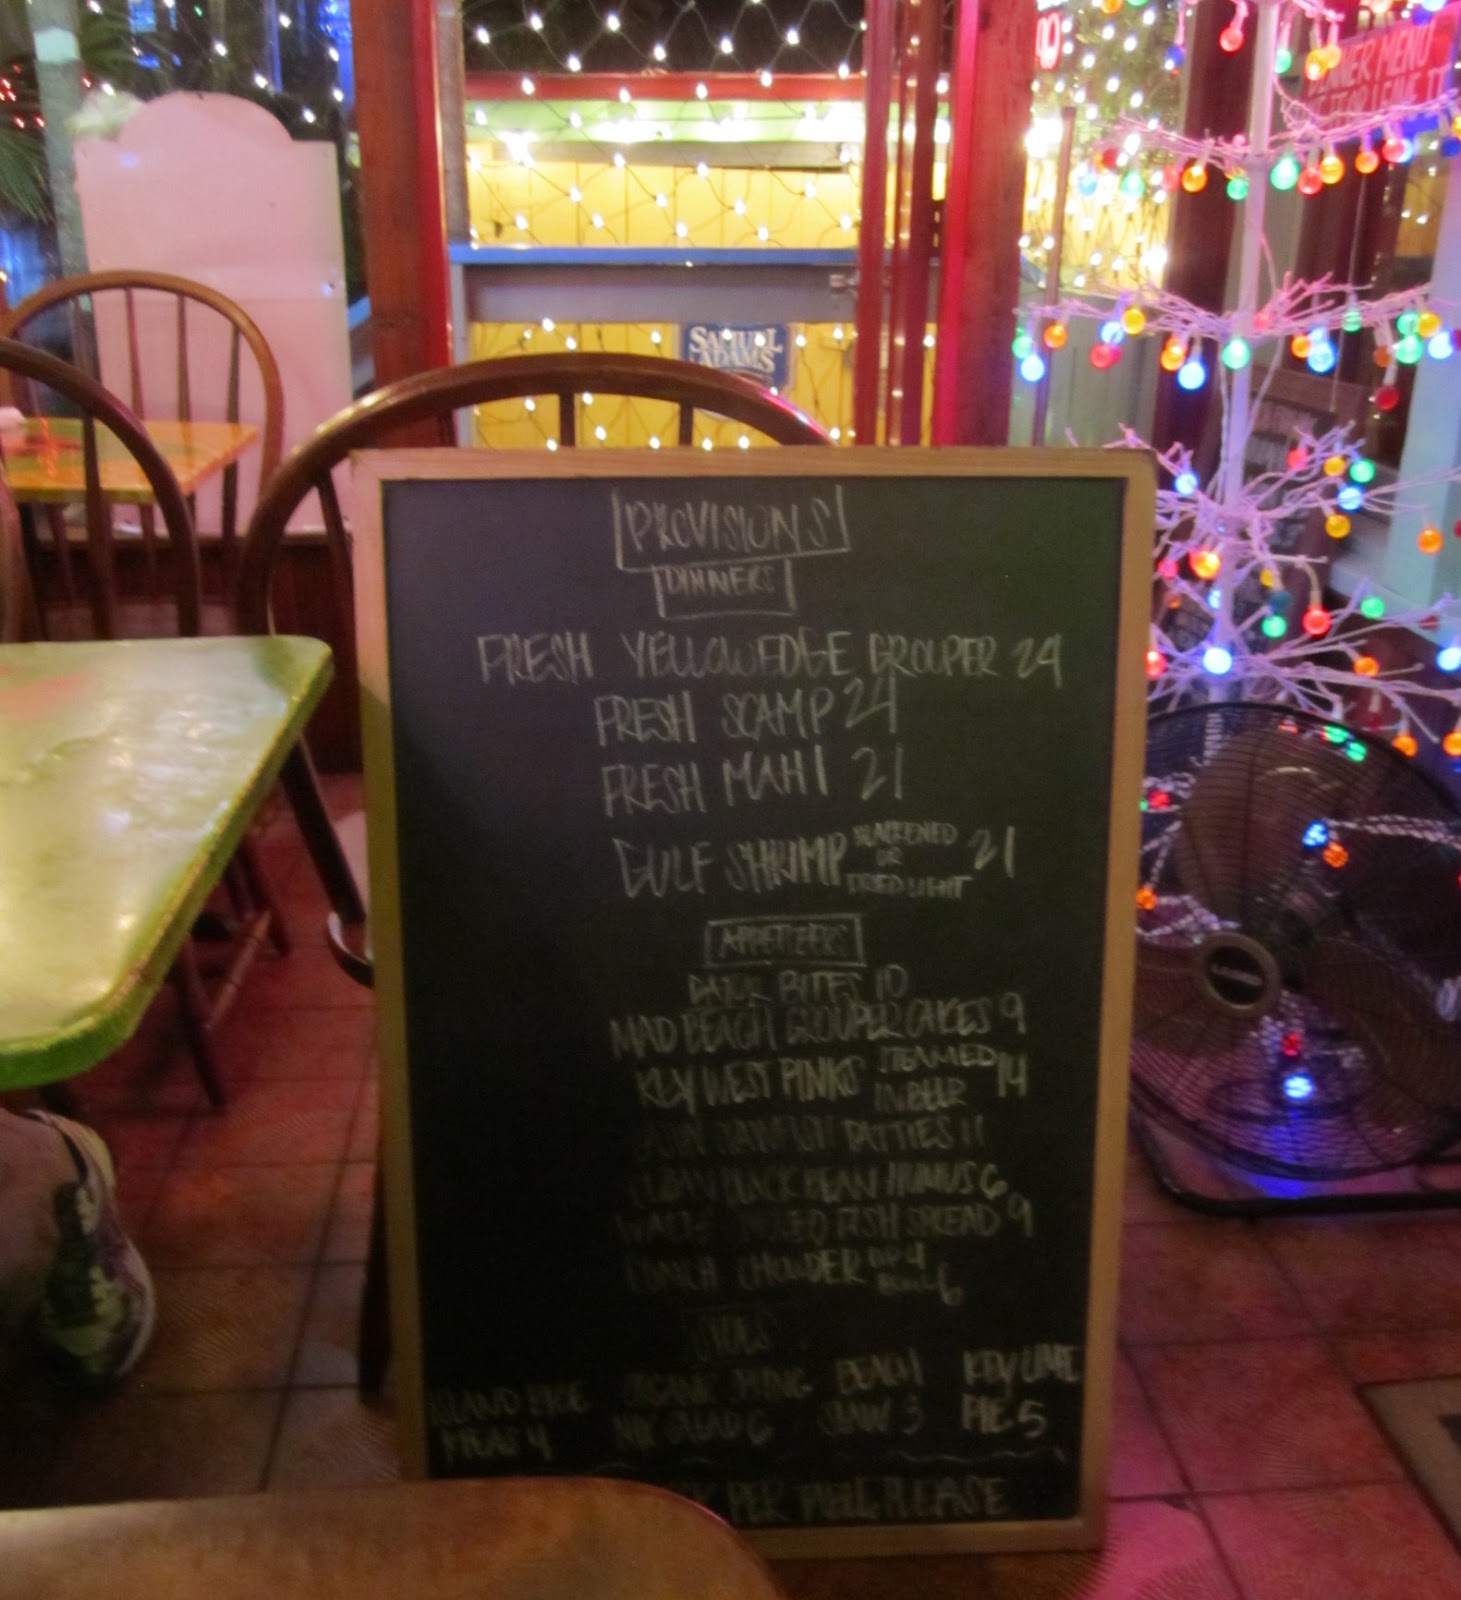 DINNER MENU
SAMUEL
ADAMS
PROVISIONS
DINNERS
FRESH YELLOWEDGE GROUPER 24
FRESH SCAMP 24
FRESH MAHI 21
GULF SHRIMP BLACKENED OR 21
APPETIZERS
GATOR BITES 10
MAD BEACH GROUPER CAKES 9
KEY WEST PINKS STEAMED IN BEER 14
PATTIES 11
CUBAN BLACK BEAN HUMUS 6
FISH SPREAD 9
CHOWDER CUP 4 BOWL 6
SIDES
ISLAND RICE ORGANIC SPRING BEACH KEY LIME
PEAS 4 MIX SALAD 6 SLAW 3 PIE 5
PER TABLE PLEASE